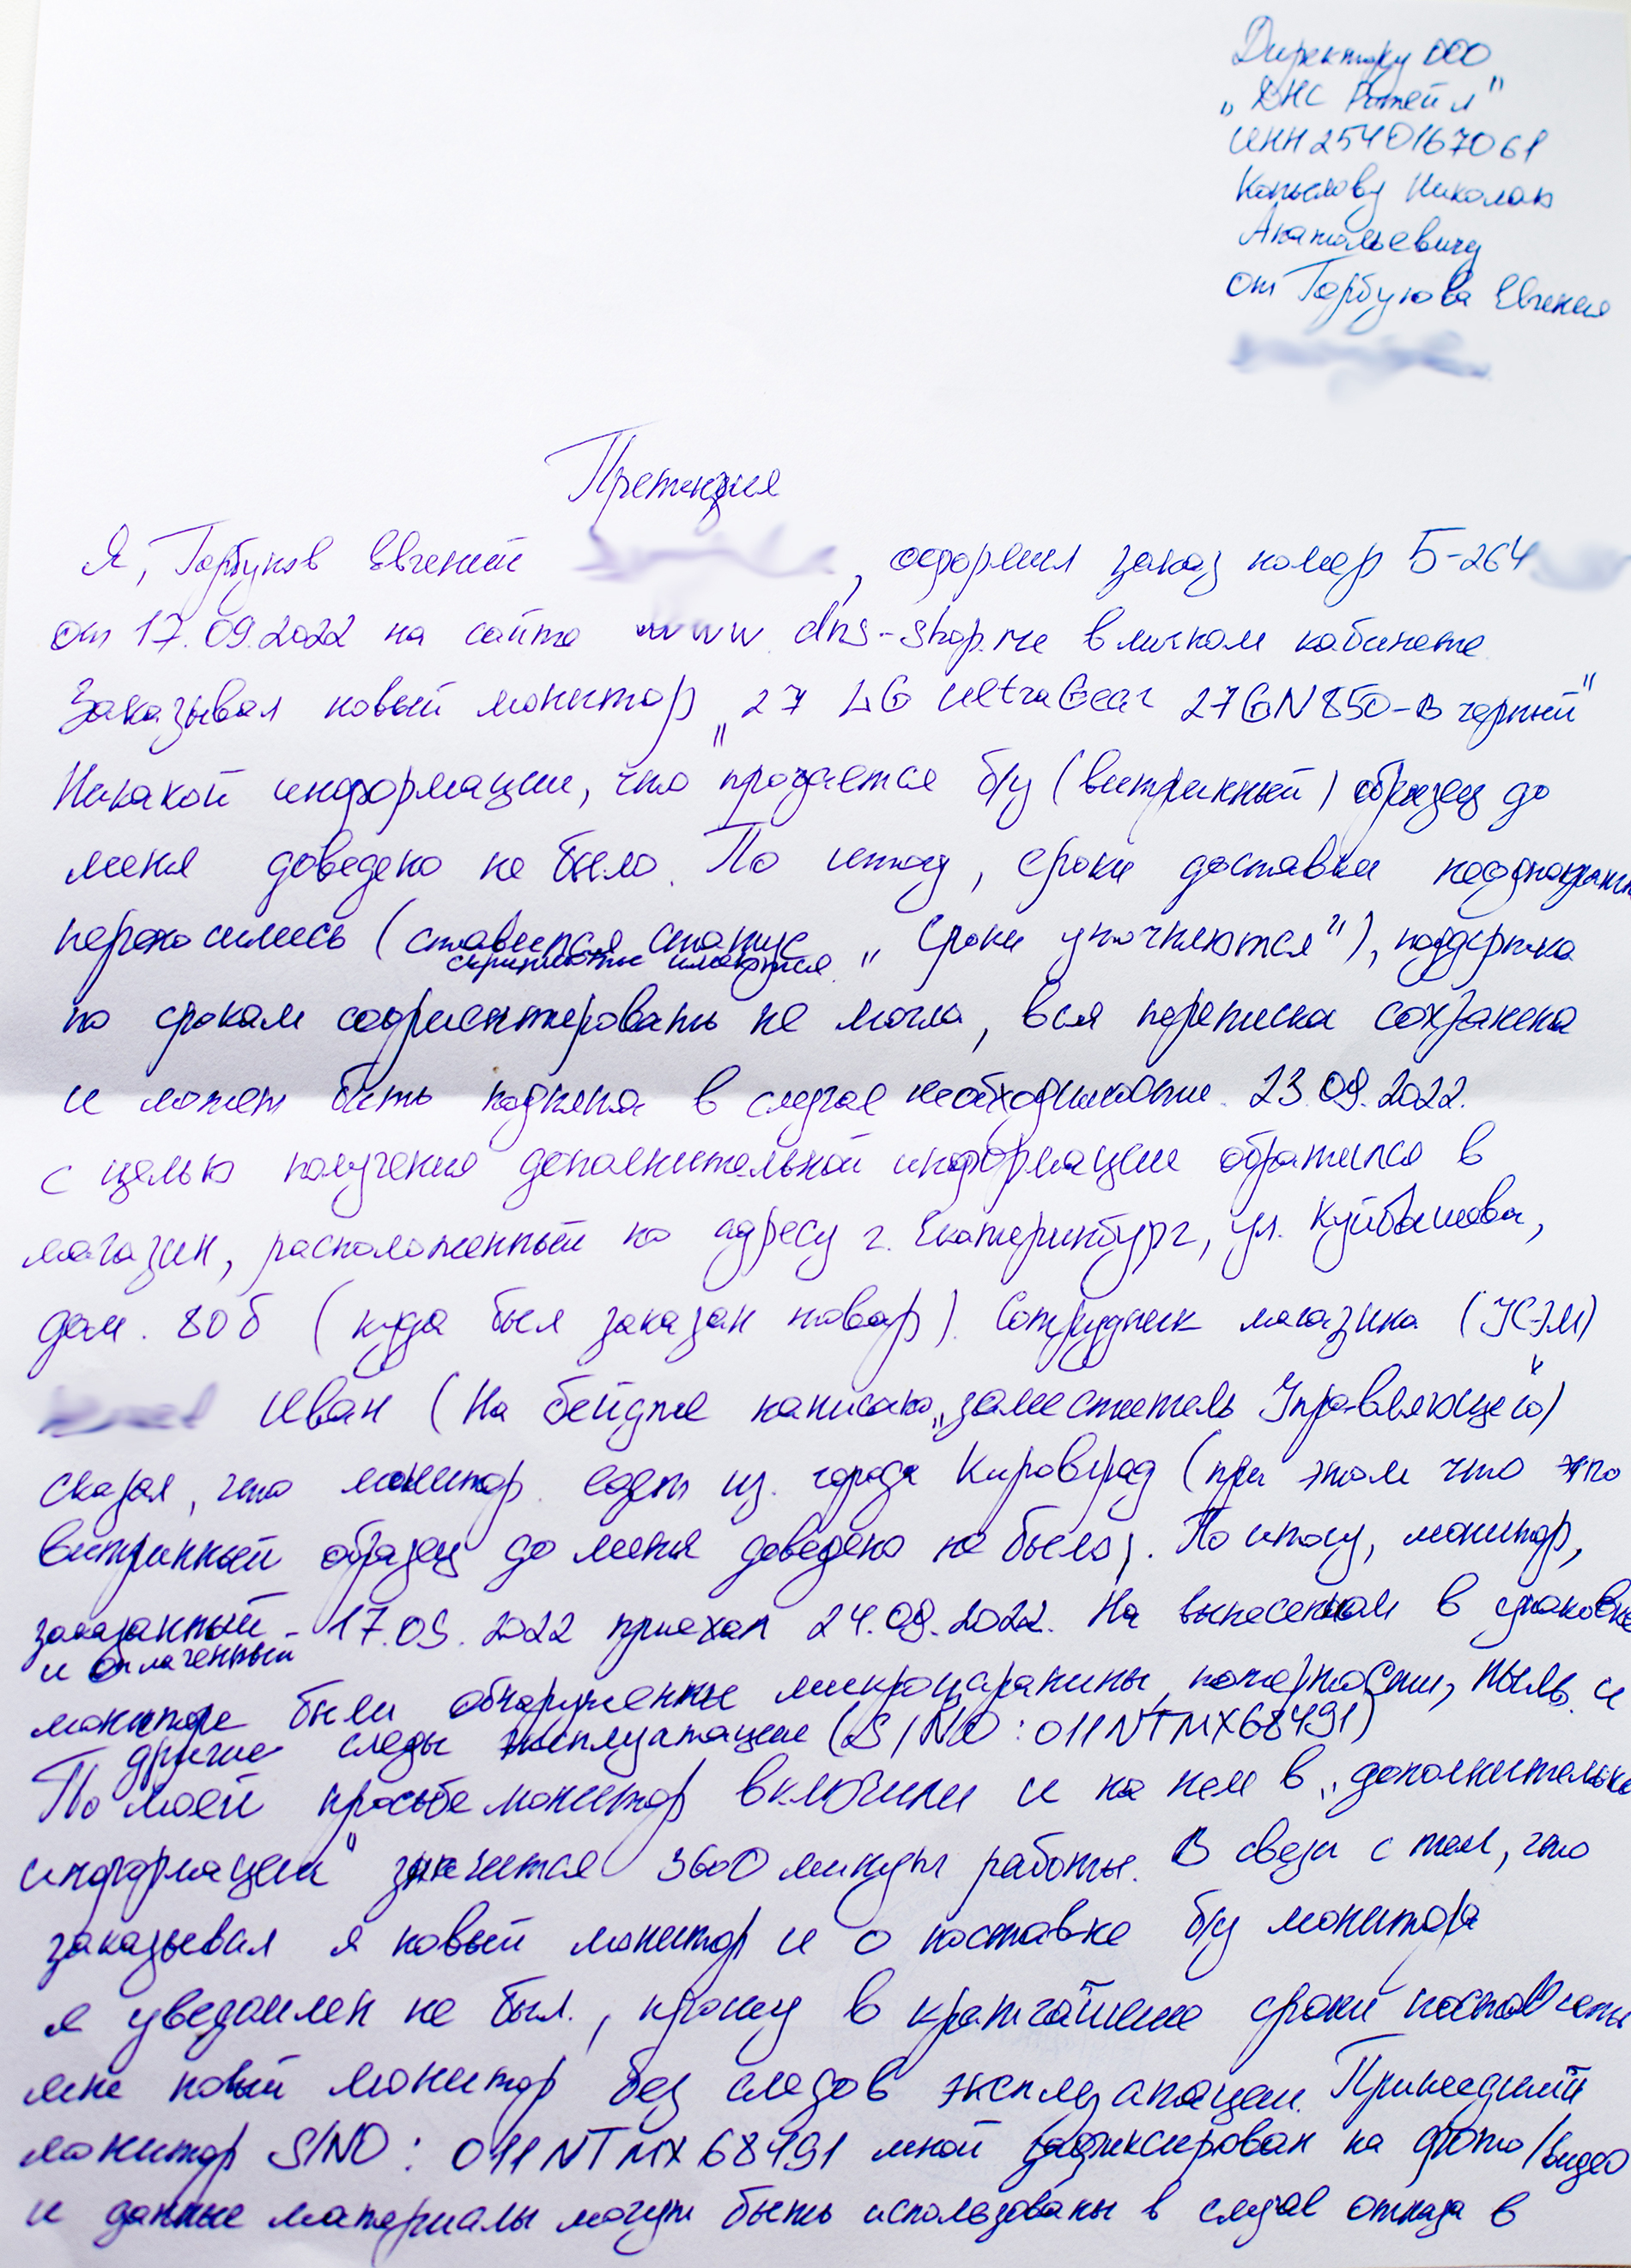 Директору ООО
„ДНС Ритейл"
ИНН 2540167061
Копылову Николаю
Анатольевичу
от Горбунова Евгения
Претензия
Я, Горбунов Евгений , оформил заказ номер Б-264
от 17.09.2022 на сайте www.dns-shop.ru в личном кабинете.
Заказывал новый монитор „27 LG UltraGear 27GN850-B черный"
Никакой информации, что продается б/у (витринный) образец до
меня доведено не было. По итогу, сроки доставки неоднократн
переносились (ставился статус „Сроки уточняются"), поддержка
скриншоты имеются
по срокам сориентировать не могла, вся переписка сохранена
и может быть поднята в случае необходимости. 23.09.2022.
с целью получения дополнительной информации обратился в
магазин, расположенный по адресу г. Екатеринбург, ул. Куйбышева,
дом. 80б (куда был заказан товар). Сотрудник магазина (УСЭМ)
Иван (На бейдже написано „заместитель Управляющего")
сказал, что монитор едет из города Кировград (при этом что это
витринный образец до меня доведено не было). По итогу, монитор,
заказанный 17.09.2022 приехал 24.09.2022. На вынесенном в упаковке
и оплаченный
мониторе были обнаружены микроцарапины, потертости, пыль и
другие следы эксплуатации (S/NO: 011NTMX68491)
По моей просьбе монитор включили и на нем в „дополнительно
информации" значится 3600 минуты работы. В связи с тем, что
заказывал я новый монитор и о поставке б/у монитора
я уведомлен не был., прошу в кратчайшие сроки поставить
мне новый монитор без следов эксплуатации. Пришедший
монитор S/NO: 011NTMX68491 мной зафиксирован на фото/видео
и данные материалы могут быть использованы в случае отказа в